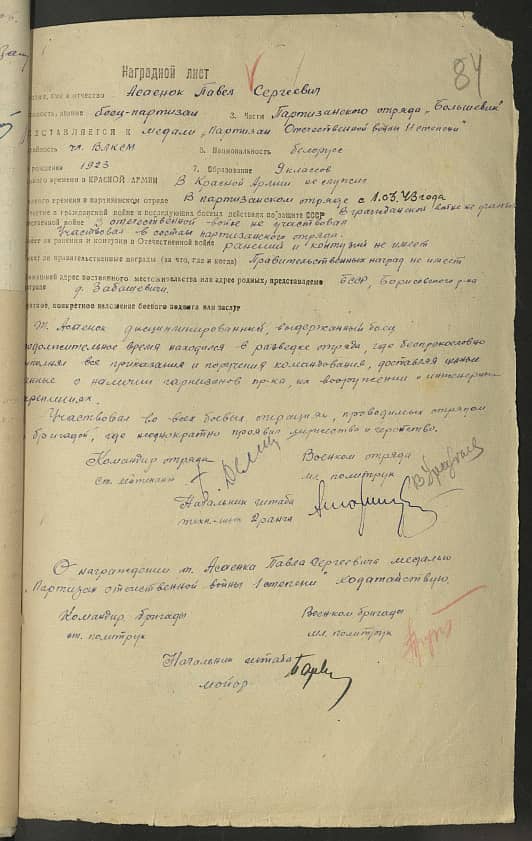 84
Наградной лист
имя и отчество Асаенок Павел Сергеевич
звание боец-партизан 3. Части Партизанского отряда „Большевик"
ПРЕДСТАВЛЯЕТСЯ К медали „Партизан Отечественной войны II степени"
чл. ВЛКСМ 5. Национальность белорусс
рождения 1923 7. Образование 9 классов
времени в КРАСНОЙ АРМИИ В Красной Армии не служил
времени в партизанском отряде В партизанском отряде с 1.03.43 года
участие в гражданской войне и последующих боевых действиях по защите СССР В гражданской войне не участв
отечественной войне В отечественной войне не участвовал
Участвовал в составе партизанского отряда.
ли ранения и контузии в Отечественной войне ранений и контузий не имеет
ли правительственные награды (за что, где и когда) Правительственных наград не имеет
адрес постоянного местожительства или адрес родных, представляемого БССР, Борисовского р-на
награде д. Забашевичи.
конкретное изложение боевого подвига или заслуг
Т. Асаенок дисциплинированный, выдержанный боец
продолжительное время находился в разведке отряда, где беспрекословно
выполнял все приказания и поручения командования, доставляя ценные
данные о наличии гарнизонов пр-ка, их вооружении и инженерных
укреплениях.
Участвовал во всех боевых операциях, проводимых отрядом
и бригадой, где неоднократно проявил мужество и геройство.
Командир отряда Военком отряда
ст. лейтенант мл. политрук
Начальник штаба
техн.-инт. 2 ранга
О награждении т. Асаенка Павла Сергеевича медалью
„Партизан отечественной войны I степени" ходатайствую.
Командир бригады Военком бригады
ст. политрук мл. политрук
Начальник штаба
майор